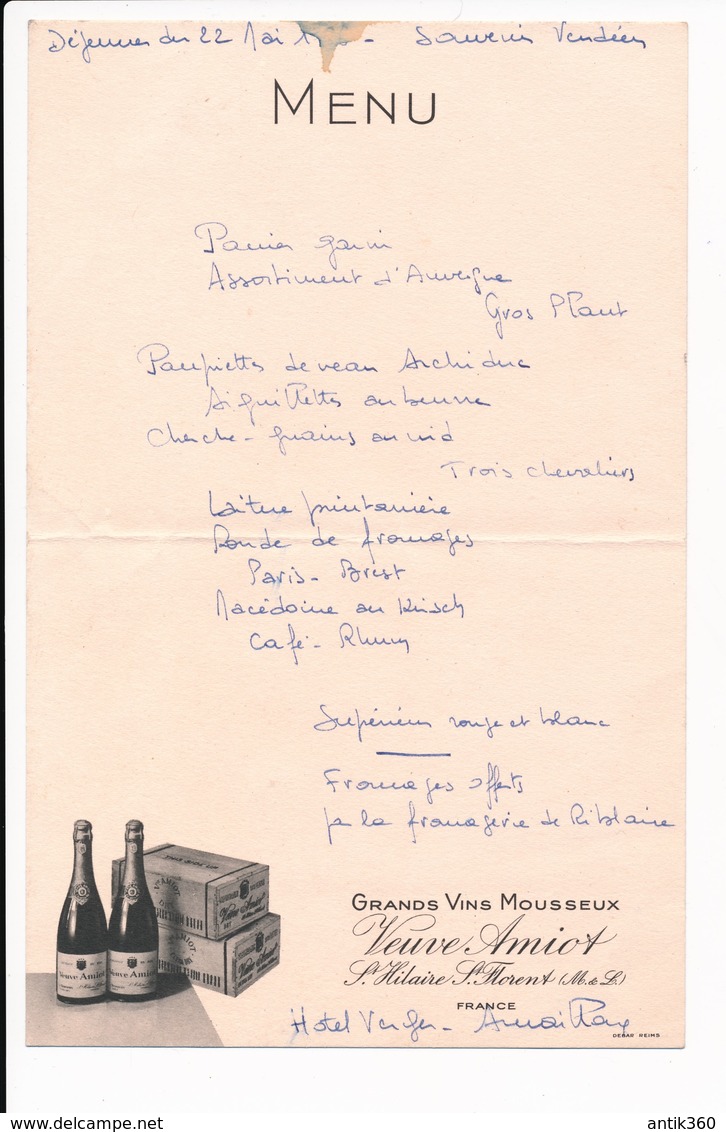 Déjeuner du 22 Mai 1 - Souvenir Vendéen
MENU
Panier garni
Assortiment d'Auvergne
Gros Plant
Paupiettes de veau Archiduc
Aiguillettes au beurre
Cherche-grains au nid
Trois chevaliers
Laitue printanière
Ronde de fromages
Paris-Brest
Macédoine au Kirsch
Café - Rhum
Supérieur rouge et blanc
Fromages offerts
par la fromagerie de Riblaire
GRANDS VINS MOUSSEUX
Veuve Amiot
St. Hilaire St. Florent (M. & L.)
FRANCE
Hotel Verger - Amailloux
DEBAR REIMS
Veuve Amiot
Veuve Amiot
Veuve Amiot
antik360